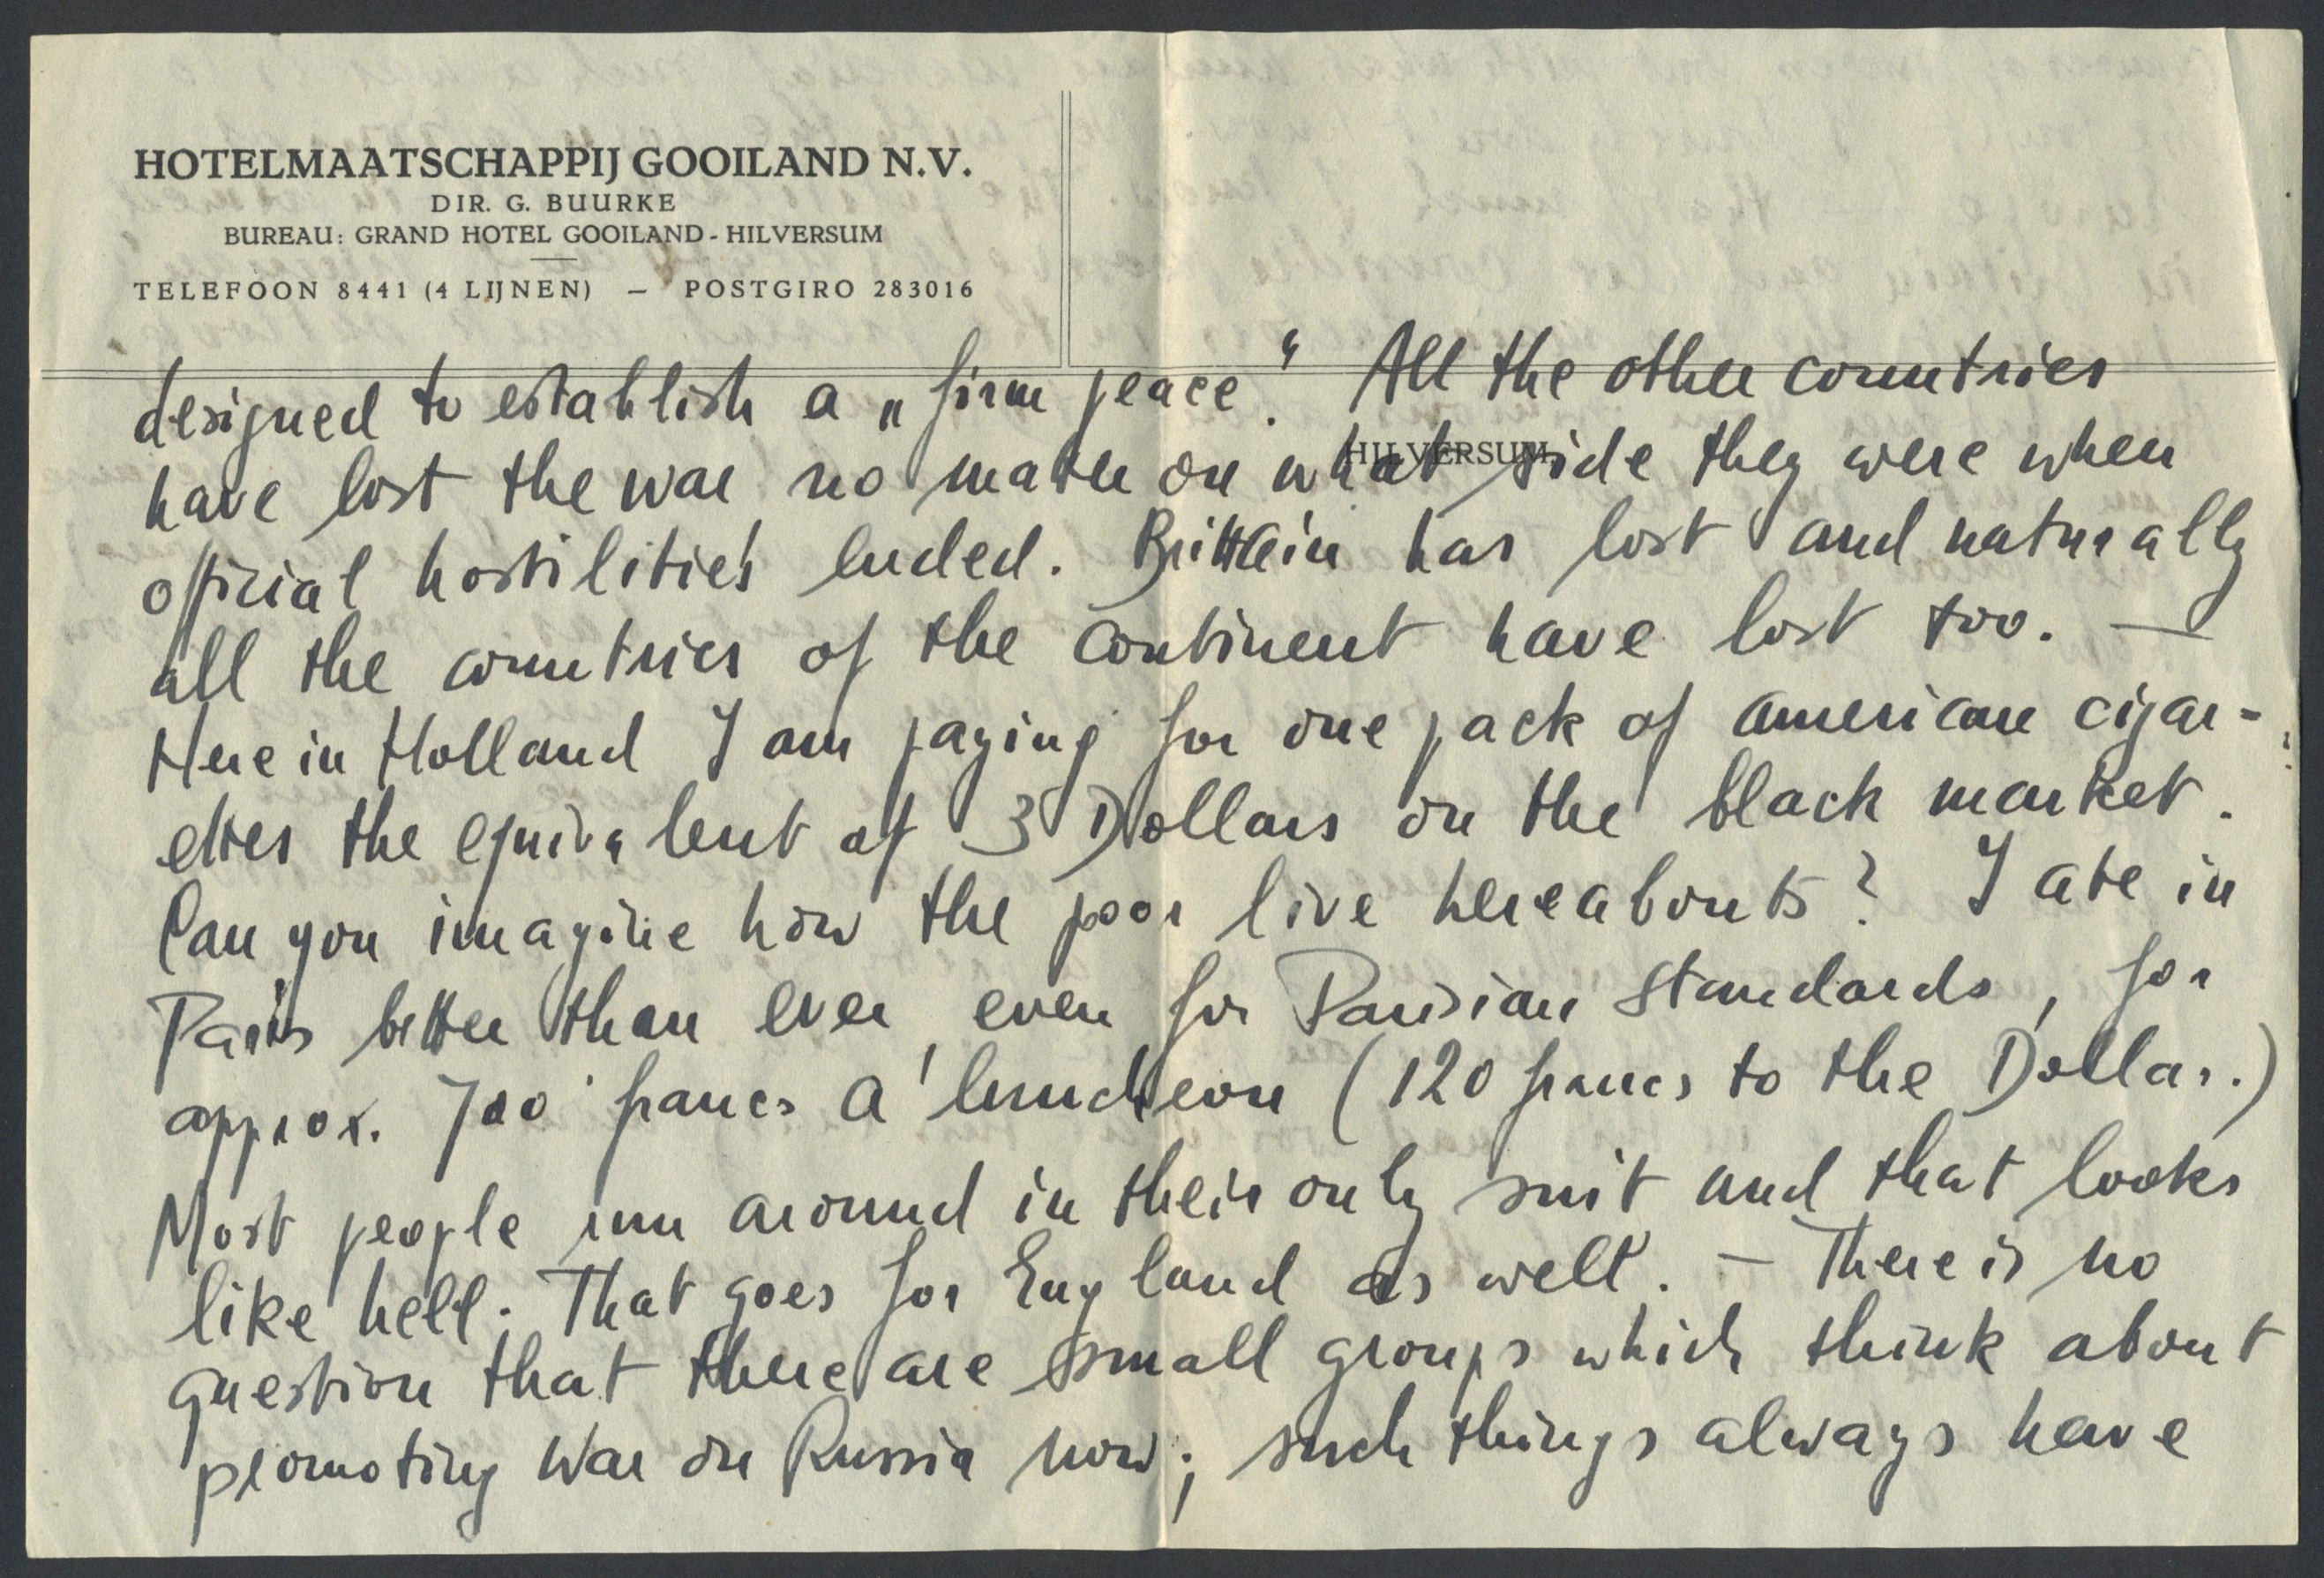 HOTELMAATSCHAPPIJ GOOILAND N.V.
DIR. G. BUURKE
BUREAU: GRAND HOTEL GOOILAND - HILVERSUM
TELEFOON 8441 (4 LIJNEN) — POSTGIRO 283016
HILVERSUM,
designed to establish a „firm peace“. All the other countries
have lost the war no matter on what side they were when
official hostilities ended. Brittain has lost and naturally
all the countries of the continent have lost too. —
Here in Holland I am paying for one pack of american cigar-
ettes the equivalent of 3 Dollars on the black market.
Can you imagine how the poor live hereabouts? I ate in
Paris better than ever, even for Parisian standards, for
approx. 700 francs a luncheon (120 francs to the Dollar.)
Most people run around in their only suit and that looks
like hell. That goes for England as well. — There is no
question that there are small groups which think about
promoting war on Russia now; such things always have